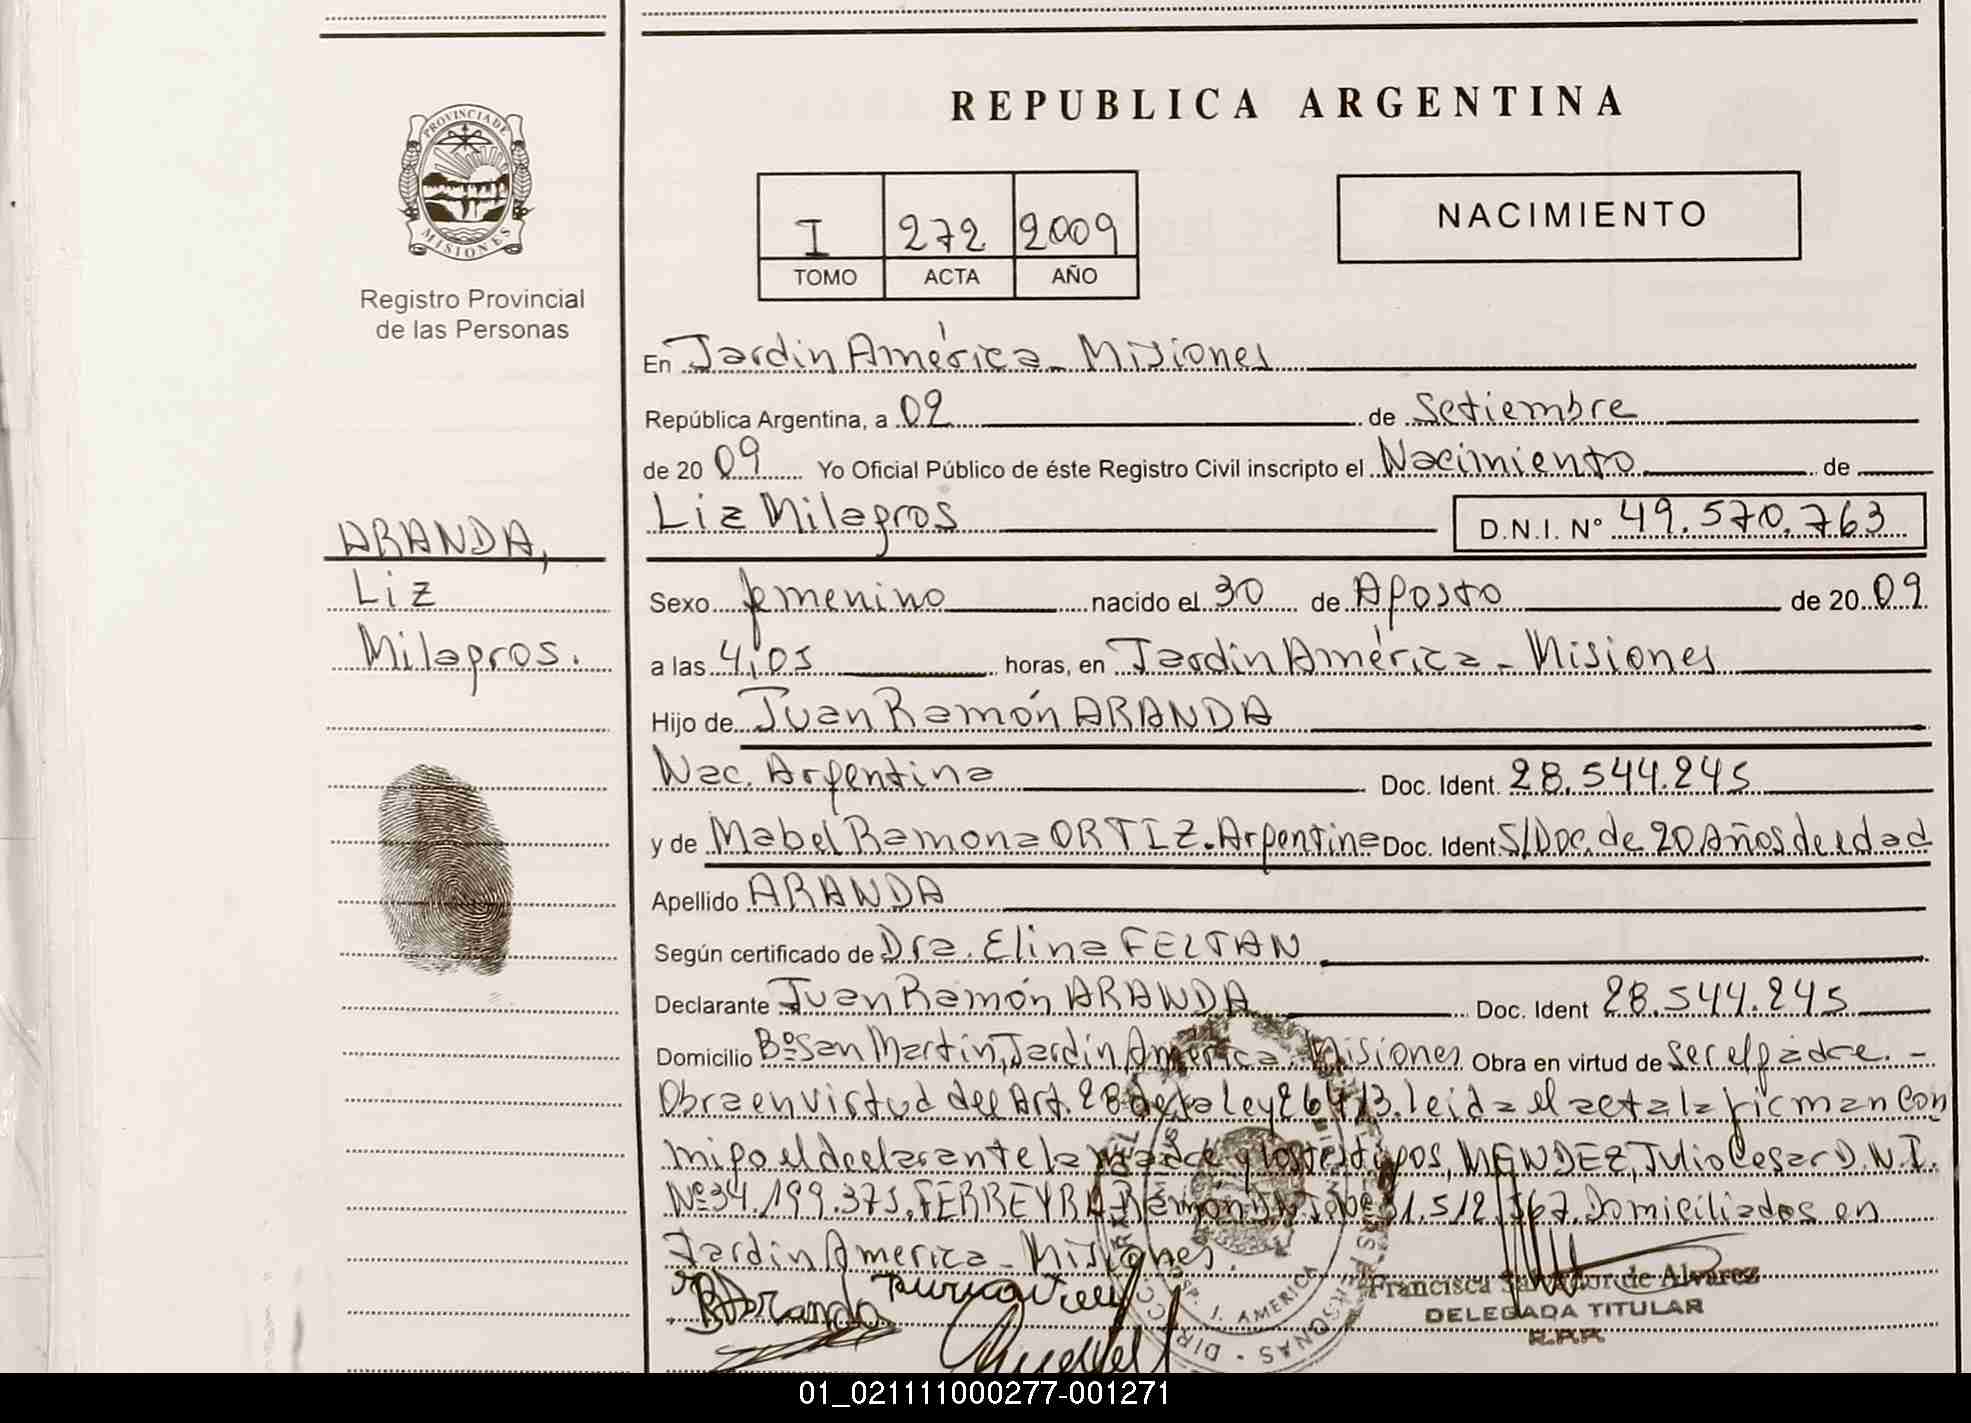 PROVINCIA DE
MISIONES
Registro Provincial
de las Personas
ARANDA,
Liz
Milagros.
REPUBLICA ARGENTINA
I 272 2009
TOMO ACTA AÑO
NACIMIENTO
En Jardin América - Misiones
República Argentina, a 02 de Setiembre
de 20 09 Yo Oficial Público de éste Registro Civil inscripto el Nacimiento de
Liz Milagros D.N.I. N° 49.570.763
Sexo femenino nacido el 30 de Agosto de 20 09
a las 4,05 horas, en Jardin América - Misiones
Hijo de Juan Ramón ARANDA
Nac. Argentina Doc. Ident. 28.544.245
y de Mabel Ramona ORTIZ. Argentina Doc. Ident S/Doc. de 20 Años de edad
Apellido ARANDA
Según certificado de Dra. Elina FELTAN
Declarante Juan Ramón ARANDA Doc. Ident 28.544.245
Domicilio Bº San Martin, Jardín América. Misiones Obra en virtud de ser el padre. -
Obra en virtud del Art. 28 de la ley 26413. leida el acta la firman con
migo el declarante la madre y los testigos, MENDEZ, Julio Cesar D.N.I.
Nº 34.199.375, FERREYRA Ramón DNI Nº 31.512.567. Domiciliados en
Jardin America - Misiones.
Aranda
Francisca Salvador de Alvarez
DELEGADA TITULAR
R.P.P.
I. AMERICA
01_021111000277-001271